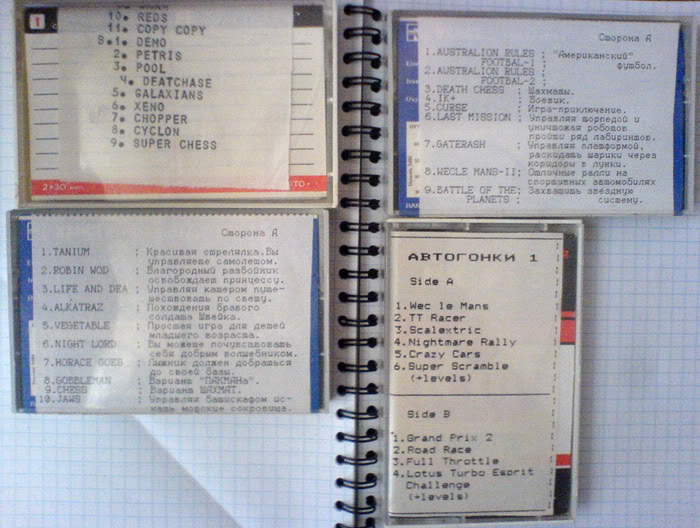 1
10. REDS
11. COPY COPY
B.1. DEMO
2. PETRIS
3. POOL
4. DEATCHASE
5. GALAXIANS
6. XENO
7. CHOPPER
8. CYCLON
9. SUPER CHESS
2×30
Сторона А
1.AUSTRALION RULES : "Американский"
FOOTBAL-1 ; футбол.
2.AUSTRALION RULES :
FOOTBAL-2 ;
3.DEATH CHESS : Шахматы.
4.IK+ : Боевик.
5.CURSE : Игра-приключение.
6.LAST MISSION : Управляя торпедой и
уничтожая роботов
пройти ряд лабиринтов.
7.GATERASH : Управляя платформой,
раскидать шарики через
коридоры в лунки.
8.WECLE MANS-II: Отличные ралли на
спортивных автомобилях
9.BATTLE OF THE: Захватить звездную
PLANETS : систему.
Сторона А
1.TANIUM : Красивая стрелялка.Вы
управляете самолетом.
2.ROBIN WOD : Благородный разбойник
освобождает принцессу.
3.LIFE AND DEA : Управляя катером путе-
шествовать по свету.
4.ALKATRAZ : Похождения бравого
солдата Швейка.
5.VEGETABLE : Простая игра для детей
младшего возраста.
6.NIGHT LORD : Вы можете почувствовать
себя добрым волшебником.
7.HORACE GOES : Лыжник должен добраться
до своей базы.
8.GOBBLEMAN : Вариант "ПАКМАНа".
9.CHESS : Вариант ШАХМАТ.
10.JAWS : Управляя батискафом ис-
кать морские сокровища.
АВТОГОНКИ 1
Side A
1.Wec le Mans
2.TT Racer
3.Scalextric
4.Nightmare Rally
5.Crazy Cars
6.Super Scramble
(+levels)
Side B
1.Grand Prix 2
2.Road Race
3.Full Throttle
4.Lotus Turbo Esprit
Challenge
(+levels)